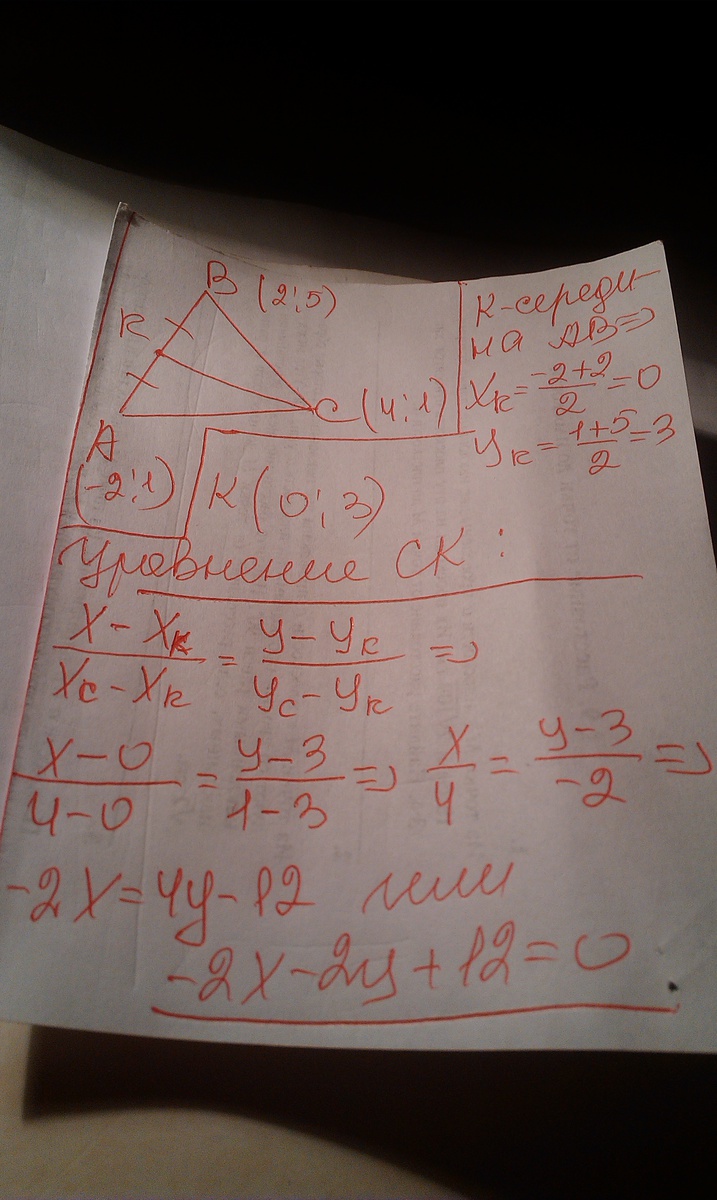 B (2;5)
K
A
(-2;1)
C (4;1)
K-середи-
на AB=>
X_K = (-2+2)/2 = 0
y_K = (1+5)/2 = 3
K (0;3)
Уравнение CK :
(X - X_K)/(X_C - X_K) = (y - y_K)/(y_C - y_K) =>
(X-0)/(4-0) = (y-3)/(1-3) => X/4 = (y-3)/(-2) =>
-2X=4y-12 или
-2X-2y+12=0